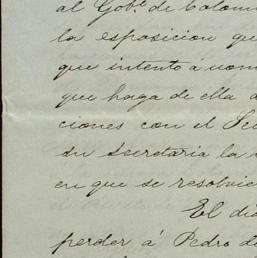 al Gobº de Colom
la esposicion qu
que intentó á nom
que haga de ella
ciones con el Se
su Secretaria la
en que se resolvie
El dia
perder á Pedro d